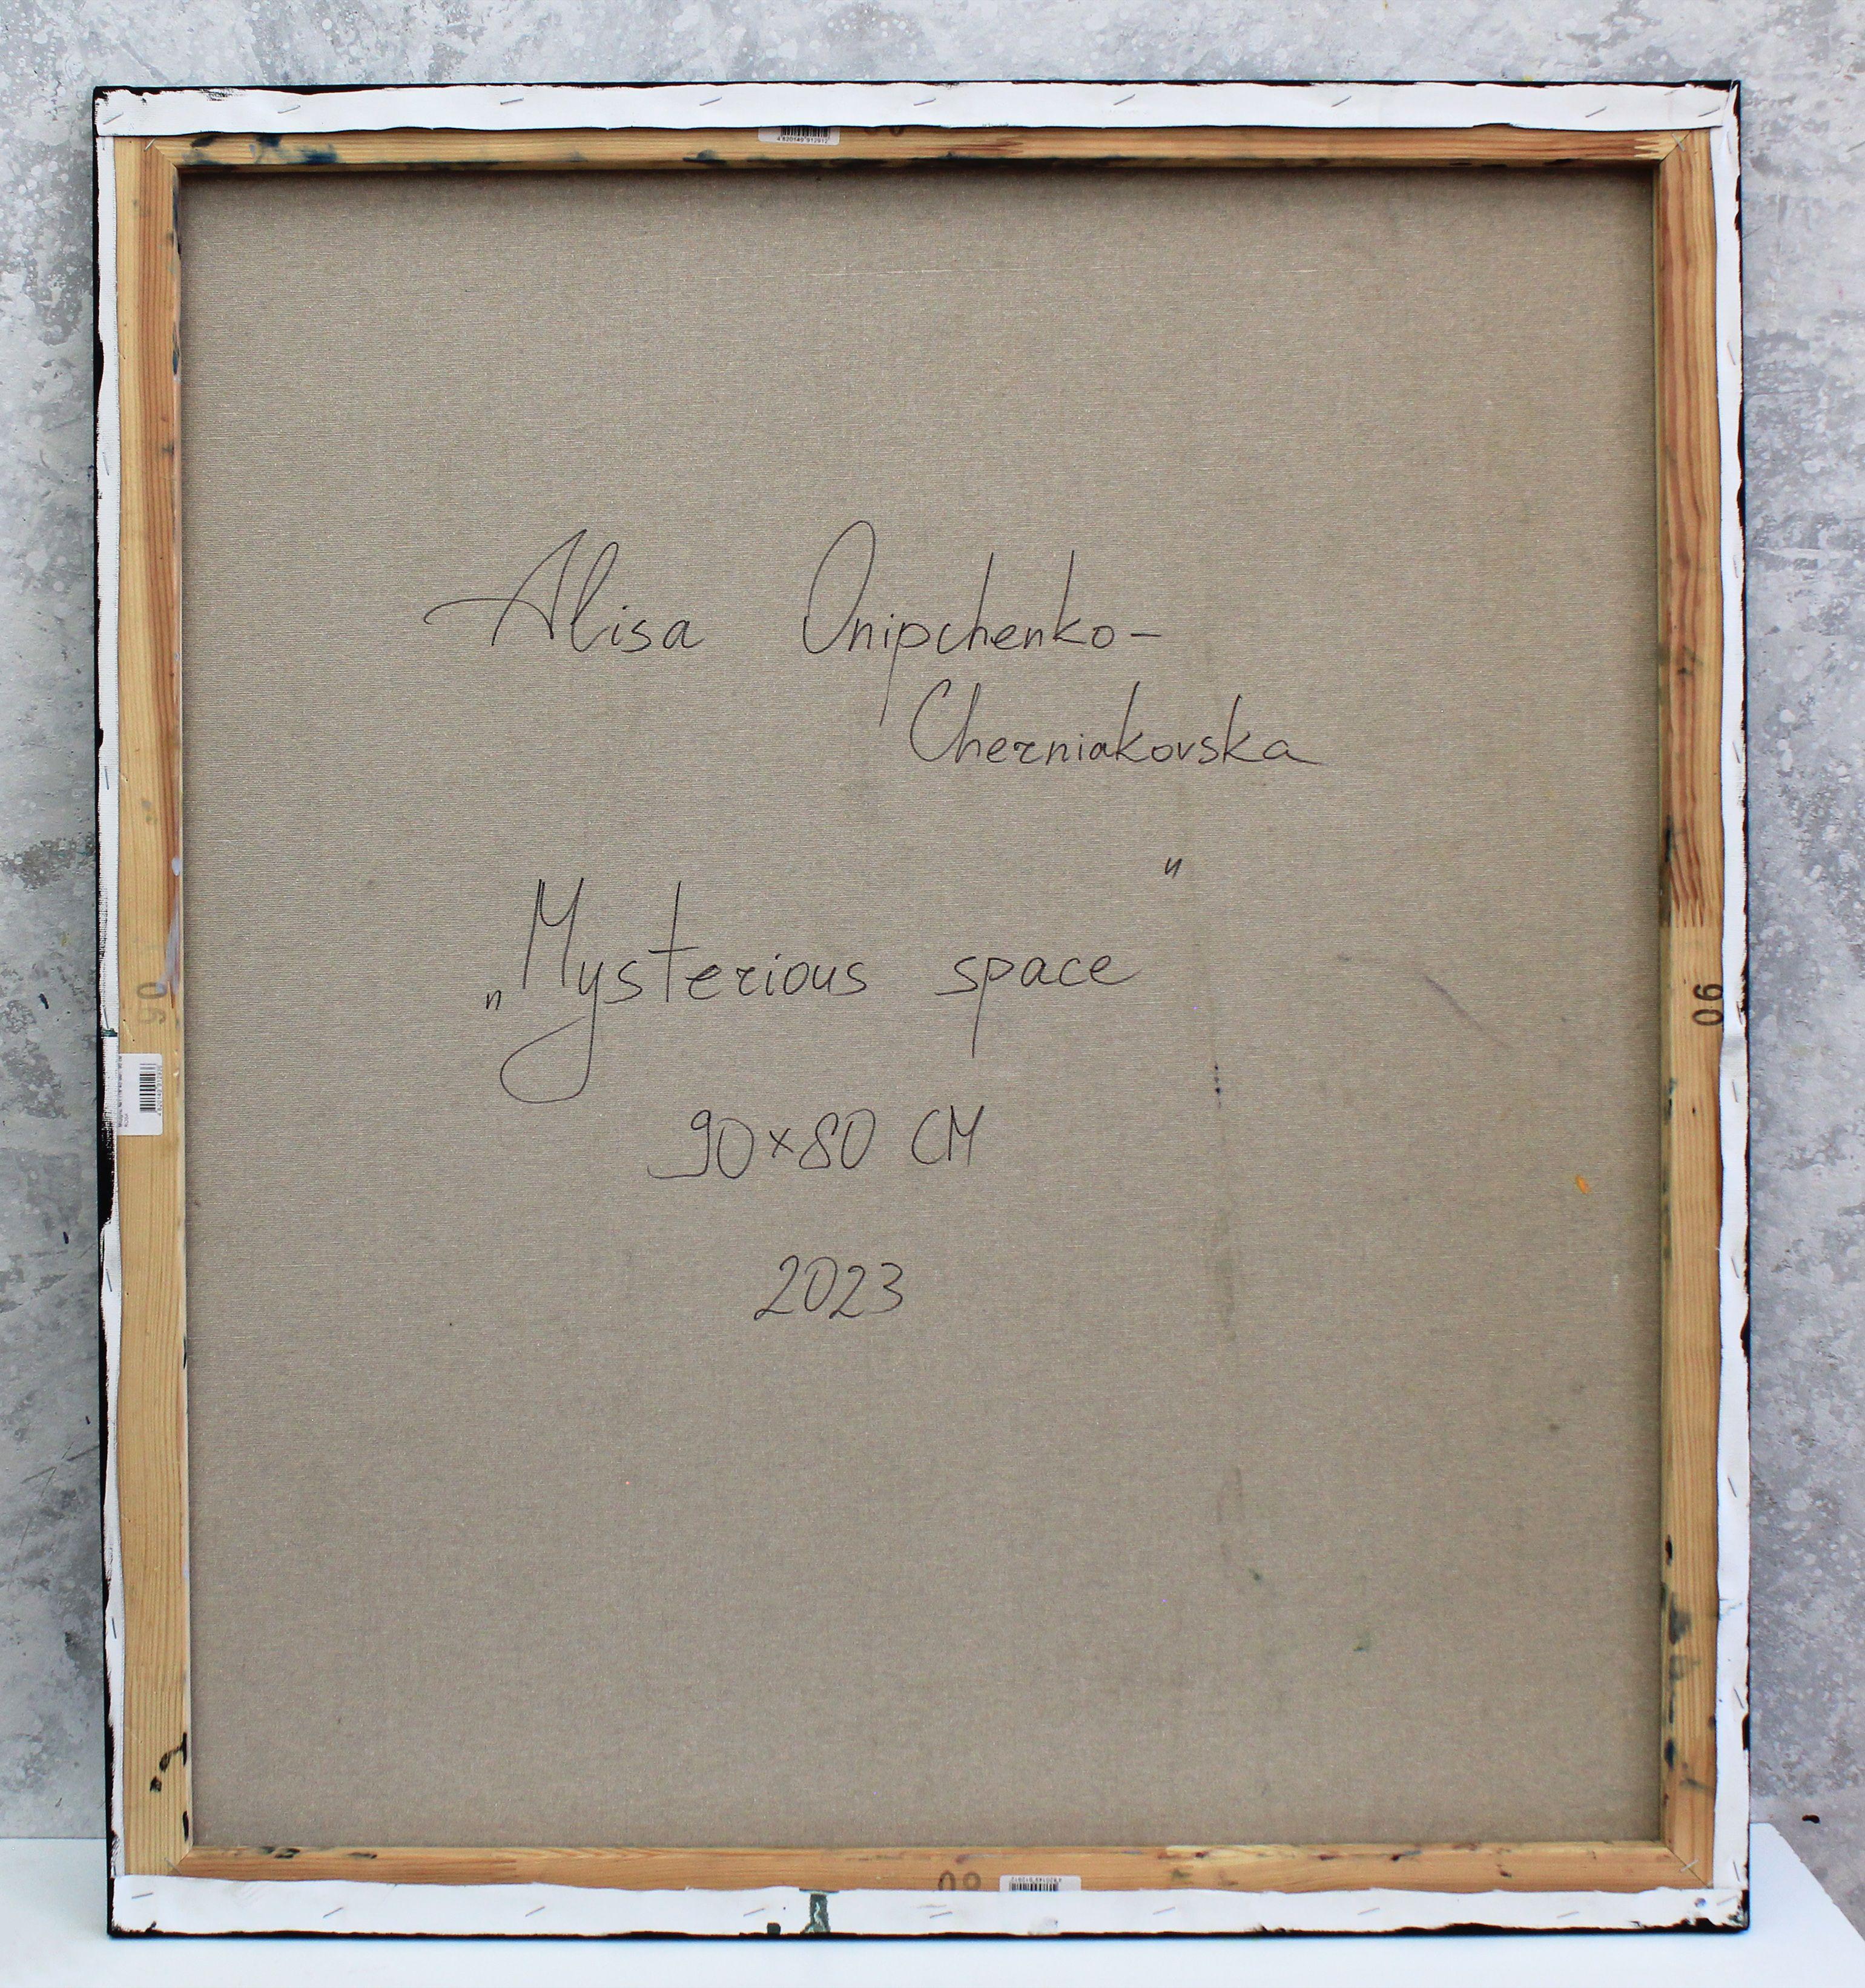 4820149 912912
Alisa Onipchenko-
Cherniakovska
„Mysterious space"
90×80 CM
2023
90
90
80